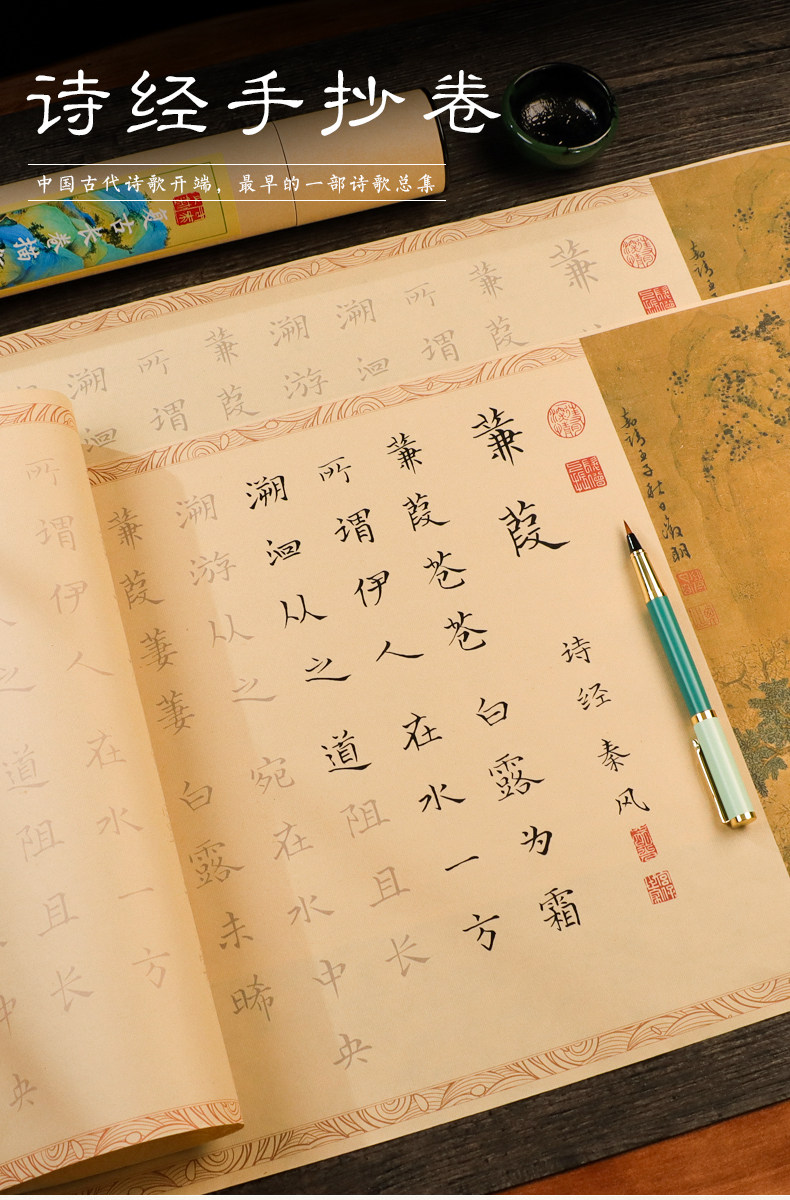 诗经手抄卷
中国古代诗歌开端，最早的一部诗歌总集
古长卷描
蒹
蒹葭
所谓
溯洄
溯游
蒹葭
所谓
溯洄
蒹葭
诗经 秦风
蒹葭苍苍 白露为霜
所谓伊人 在水一方
溯洄从之 道阻且长
溯游从之 宛在水中央
蒹葭萋萋 白露未晞
所谓伊人 在水一方
之 道阻且长
中央